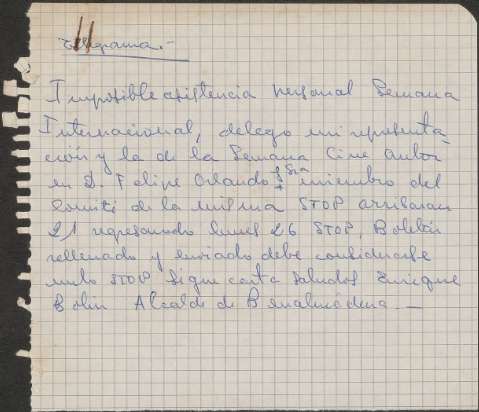 Telegrama.-
Imposible asistencia personal Semana
Internacional, delego mi representa-
ción y la de la Semana Cine Autor
en D. Felipe Orlando y Sra miembro del
Comité de la misma STOP arribaran
21 regresando lunes 26 STOP, Boletín
rellenado y enviado debe considerarse
nulo STOP Sigue carta Saludos Enrique
Bolin Alcalde de Benalmádena.—